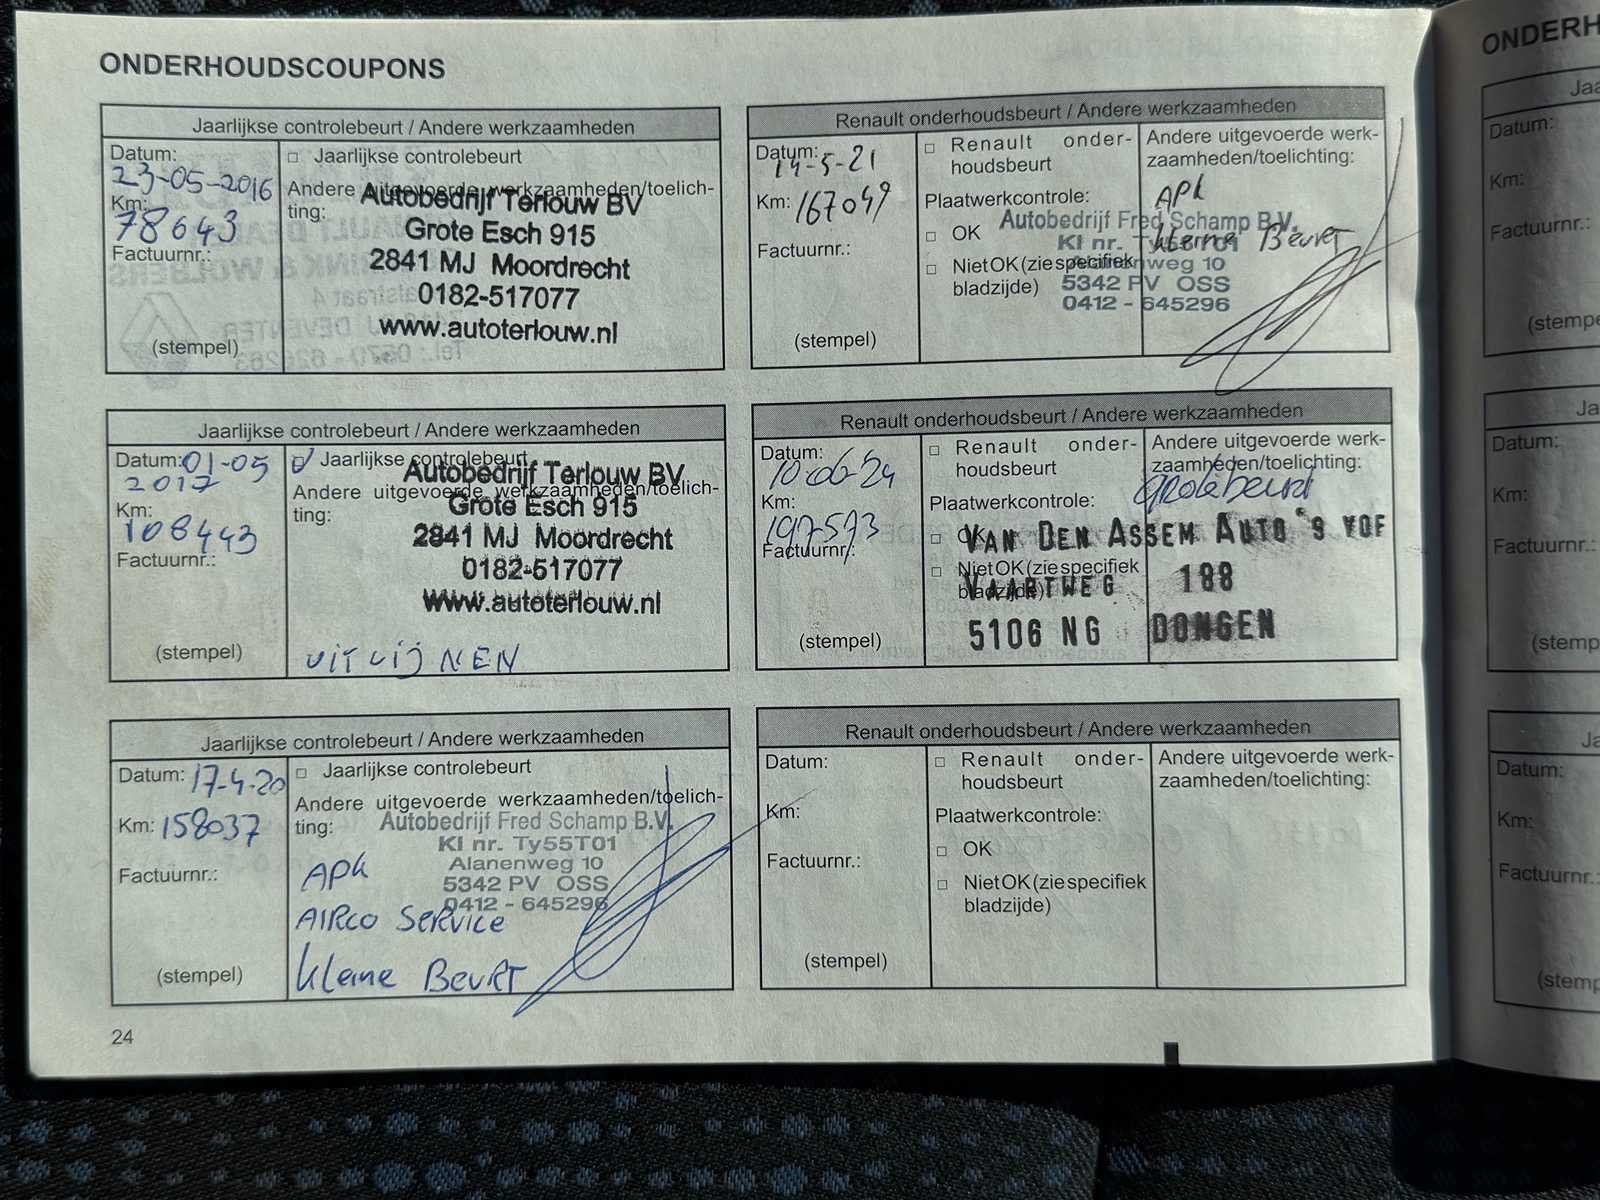 ONDERHOUDSCOUPONS
Jaarlijkse controlebeurt / Andere werkzaamheden
Datum:
23-05-2016
Km:
78643
Factuurnr.:
(stempel)
Jaarlijkse controlebeurt
Andere uitgevoerde werkzaamheden/toelich-
ting:
Autobedrijf Terlouw BV
Grote Esch 915
2841 MJ Moordrecht
0182-517077
www.autoterlouw.nl
Renault onderhoudsbeurt / Andere werkzaamheden
Datum:
14-5-21
Km: 167049
Factuurnr.:
(stempel)
Renault onder-
houdsbeurt
Plaatwerkcontrole:
OK
Niet OK (zie specifiek
bladzijde)
Andere uitgevoerde werk-
zaamheden/toelichting:
APK
Kleine Beurt
Autobedrijf Fred Schamp B.V.
KI nr. Ty55T01
Alanenweg 10
5342 PV OSS
0412 - 645296
Jaarlijkse controlebeurt / Andere werkzaamheden
Datum: 01-05
2017
Km:
108443
Factuurnr.:
(stempel)
Jaarlijkse controlebeurt
Andere uitgevoerde werkzaamheden/toelich-
ting:
Autobedrijf Terlouw BV
Grote Esch 915
2841 MJ Moordrecht
0182-517077
www.autoterlouw.nl
UITLIJNEN
Renault onderhoudsbeurt / Andere werkzaamheden
Datum:
10-06-24
Km:
197573
Factuurnr.:
(stempel)
Renault onder-
houdsbeurt
Plaatwerkcontrole:
OK
Niet OK (zie specifiek
bladzijde)
Andere uitgevoerde werk-
zaamheden/toelichting:
Grote beurt
VAN DEN ASSEM AUTO'S VOF
VAARTWEG 188
5106 NG DONGEN
Jaarlijkse controlebeurt / Andere werkzaamheden
Datum: 17-4-20
Km: 158037
Factuurnr.:
(stempel)
Jaarlijkse controlebeurt
Andere uitgevoerde werkzaamheden/toelich-
ting:
Autobedrijf Fred Schamp B.V.
KI nr. Ty55T01
Alanenweg 10
5342 PV OSS
0412 - 645296
APK
AIRCO SERVICE
Kleine Beurt
Renault onderhoudsbeurt / Andere werkzaamheden
Datum:
Km:
Factuurnr.:
(stempel)
Renault onder-
houdsbeurt
Plaatwerkcontrole:
OK
Niet OK (zie specifiek
bladzijde)
Andere uitgevoerde werk-
zaamheden/toelichting:
24
ONDERH
Jaa
Datum:
Km:
Factuurnr.:
(stempe
Ja
Datum:
Km:
Factuurnr.:
(stemp
Ja
Datum:
Km:
Factuurnr.:
(stemp